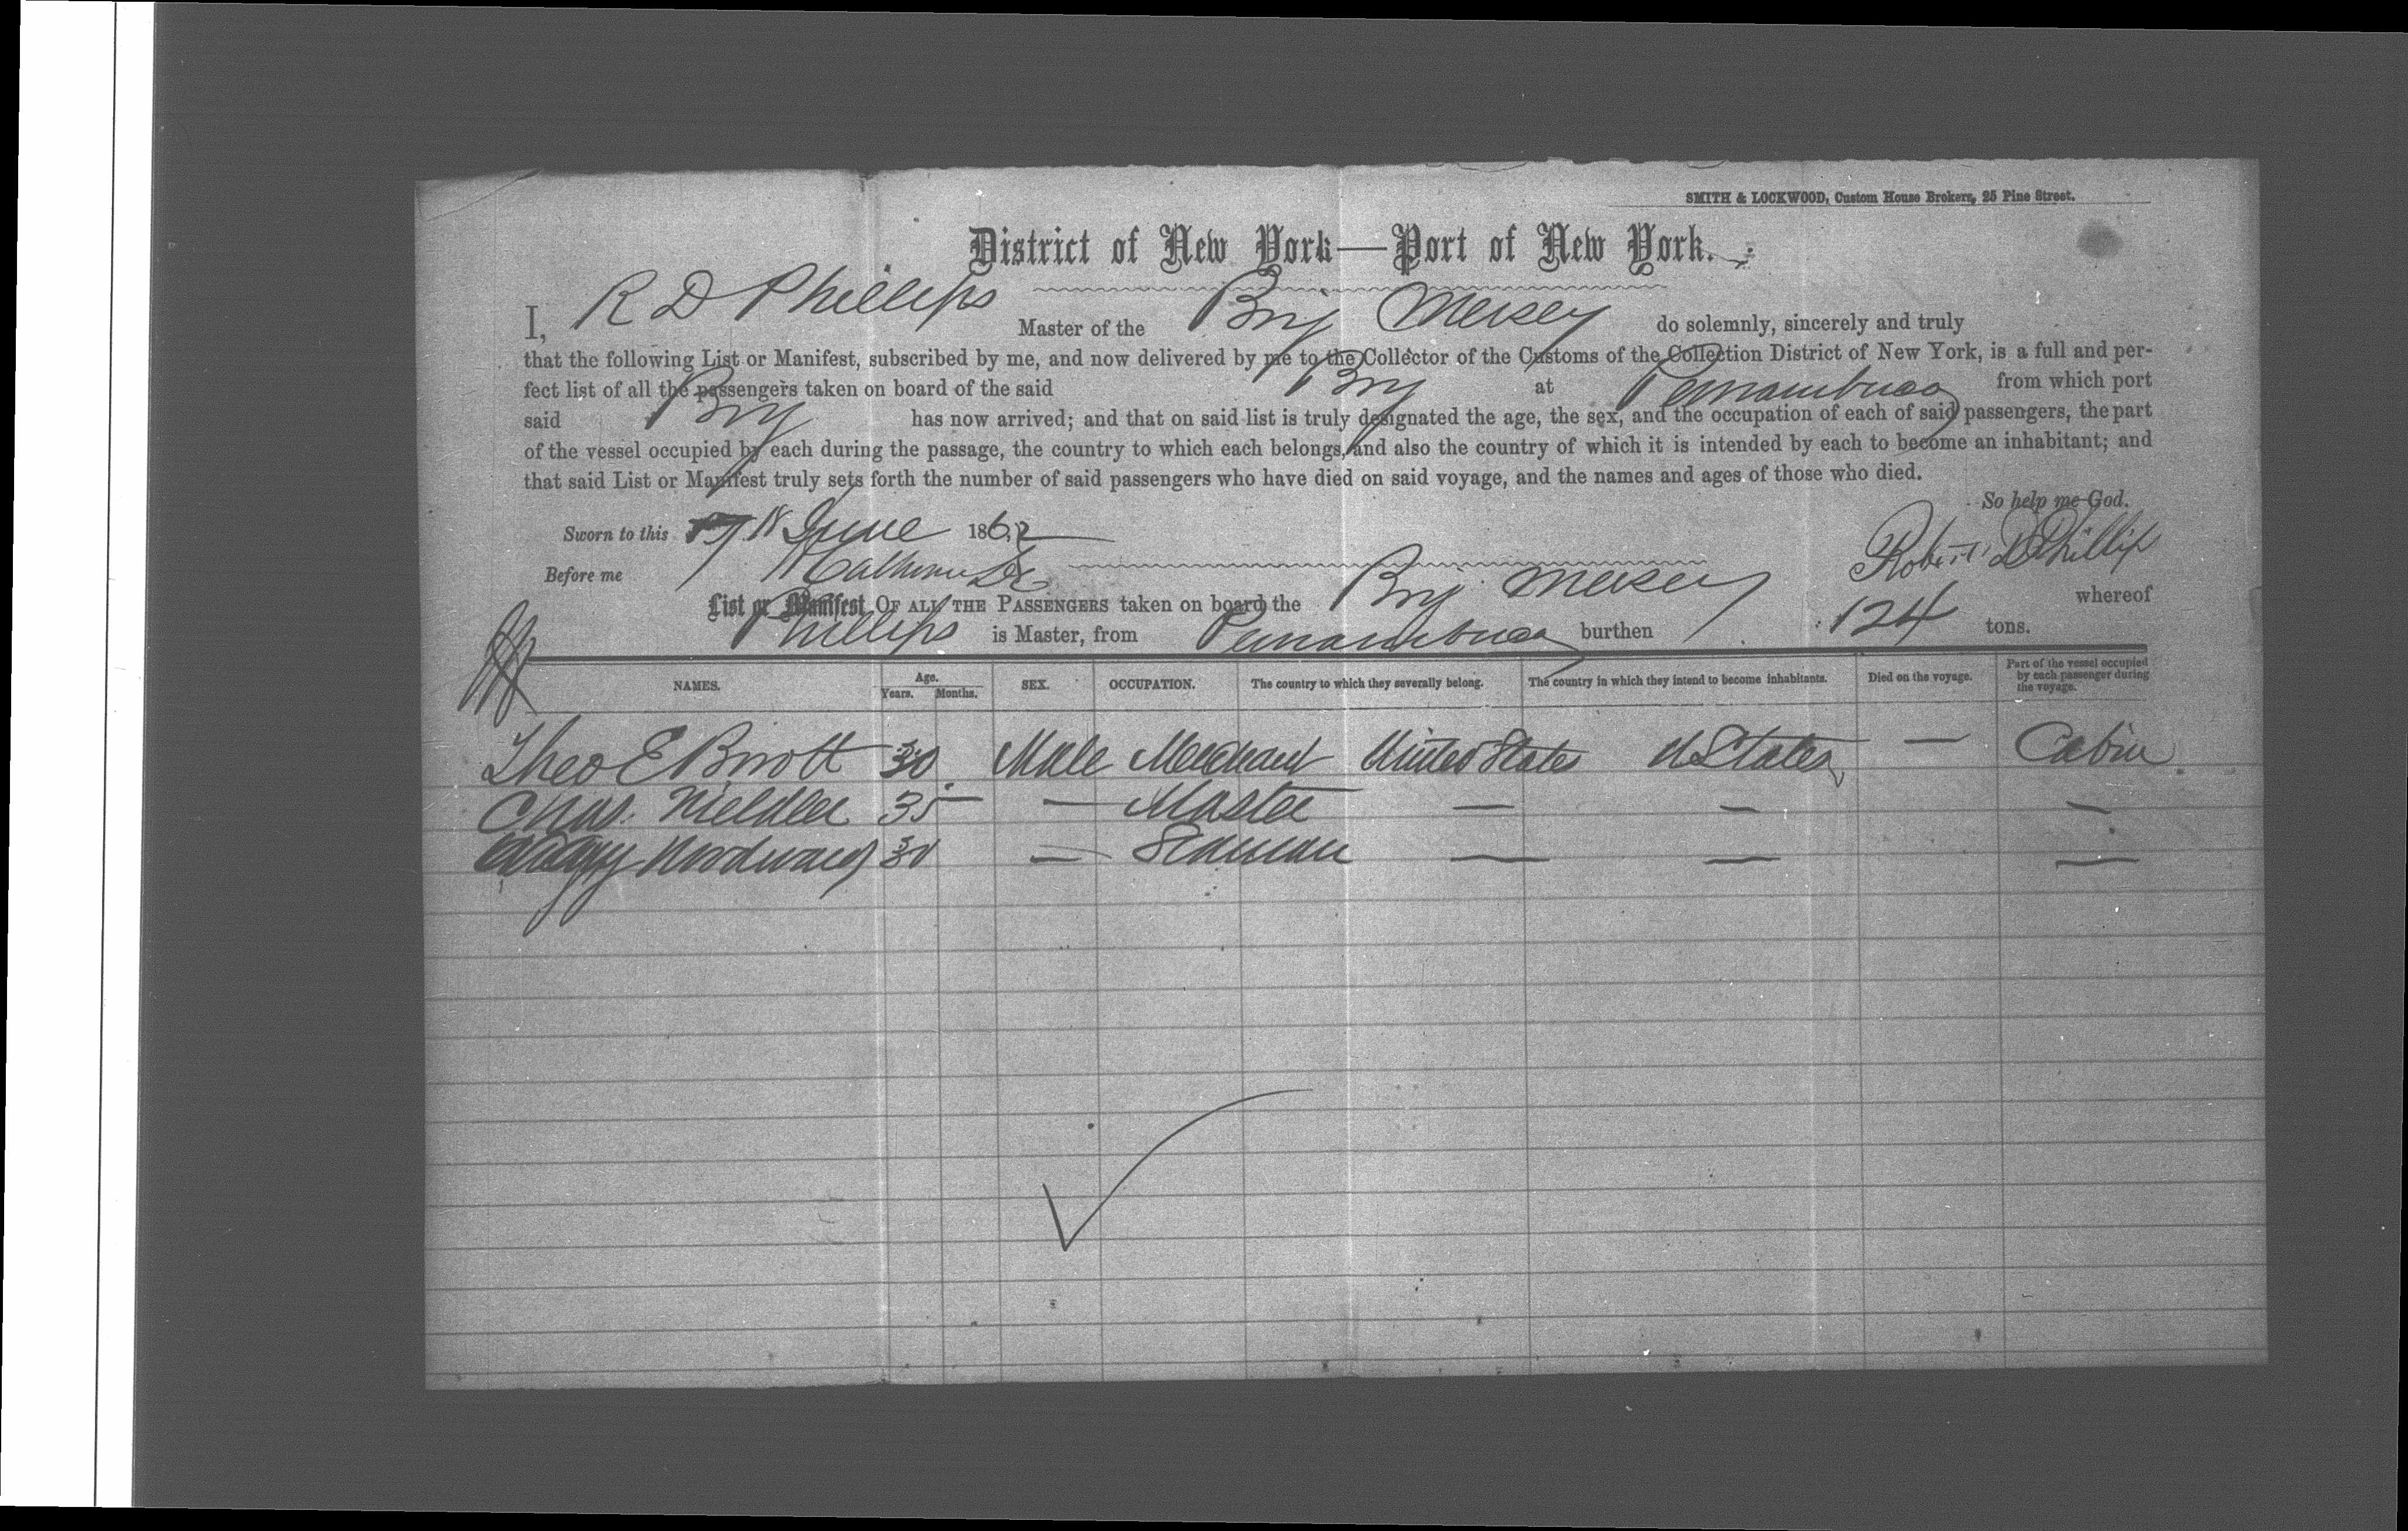 SMITH & LOCKWOOD, Custom House Brokers, 25 Pine Street.
District of New York—Port of New York.
I, R D Phillips Master of the Brig Mersey do solemnly, sincerely and truly
that the following List or Manifest, subscribed by me, and now delivered by me to the Collector of the Customs of the Collection District of New York, is a full and per-
fect list of all the passengers taken on board of the said Brig at Pernambuco from which port
said Brig has now arrived; and that on said list is truly designated the age, the sex, and the occupation of each of said passengers, the part
of the vessel occupied by each during the passage, the country to which each belongs, and also the country of which it is intended by each to become an inhabitant; and
that said List or Manifest truly sets forth the number of said passengers who have died on said voyage, and the names and ages of those who died.
So help me God.
Sworn to this 18 June 1862
Robert D Phillips
Before me
List or Manifest OF ALL THE PASSENGERS taken on board the Brig Mersey whereof
Phillips is Master, from Pernambuco burthen 124 tons.
NAMES. Age. Years. Months. SEX. OCCUPATION. The country to which they severally belong. The country in which they intend to become inhabitants. Died on the voyage. Part of the vessel occupied by each passenger during the voyage.
Theo E 30 Male Merchant United States U States — Cabin
Chas. 35 — Master — — —
30 — Seaman — — —